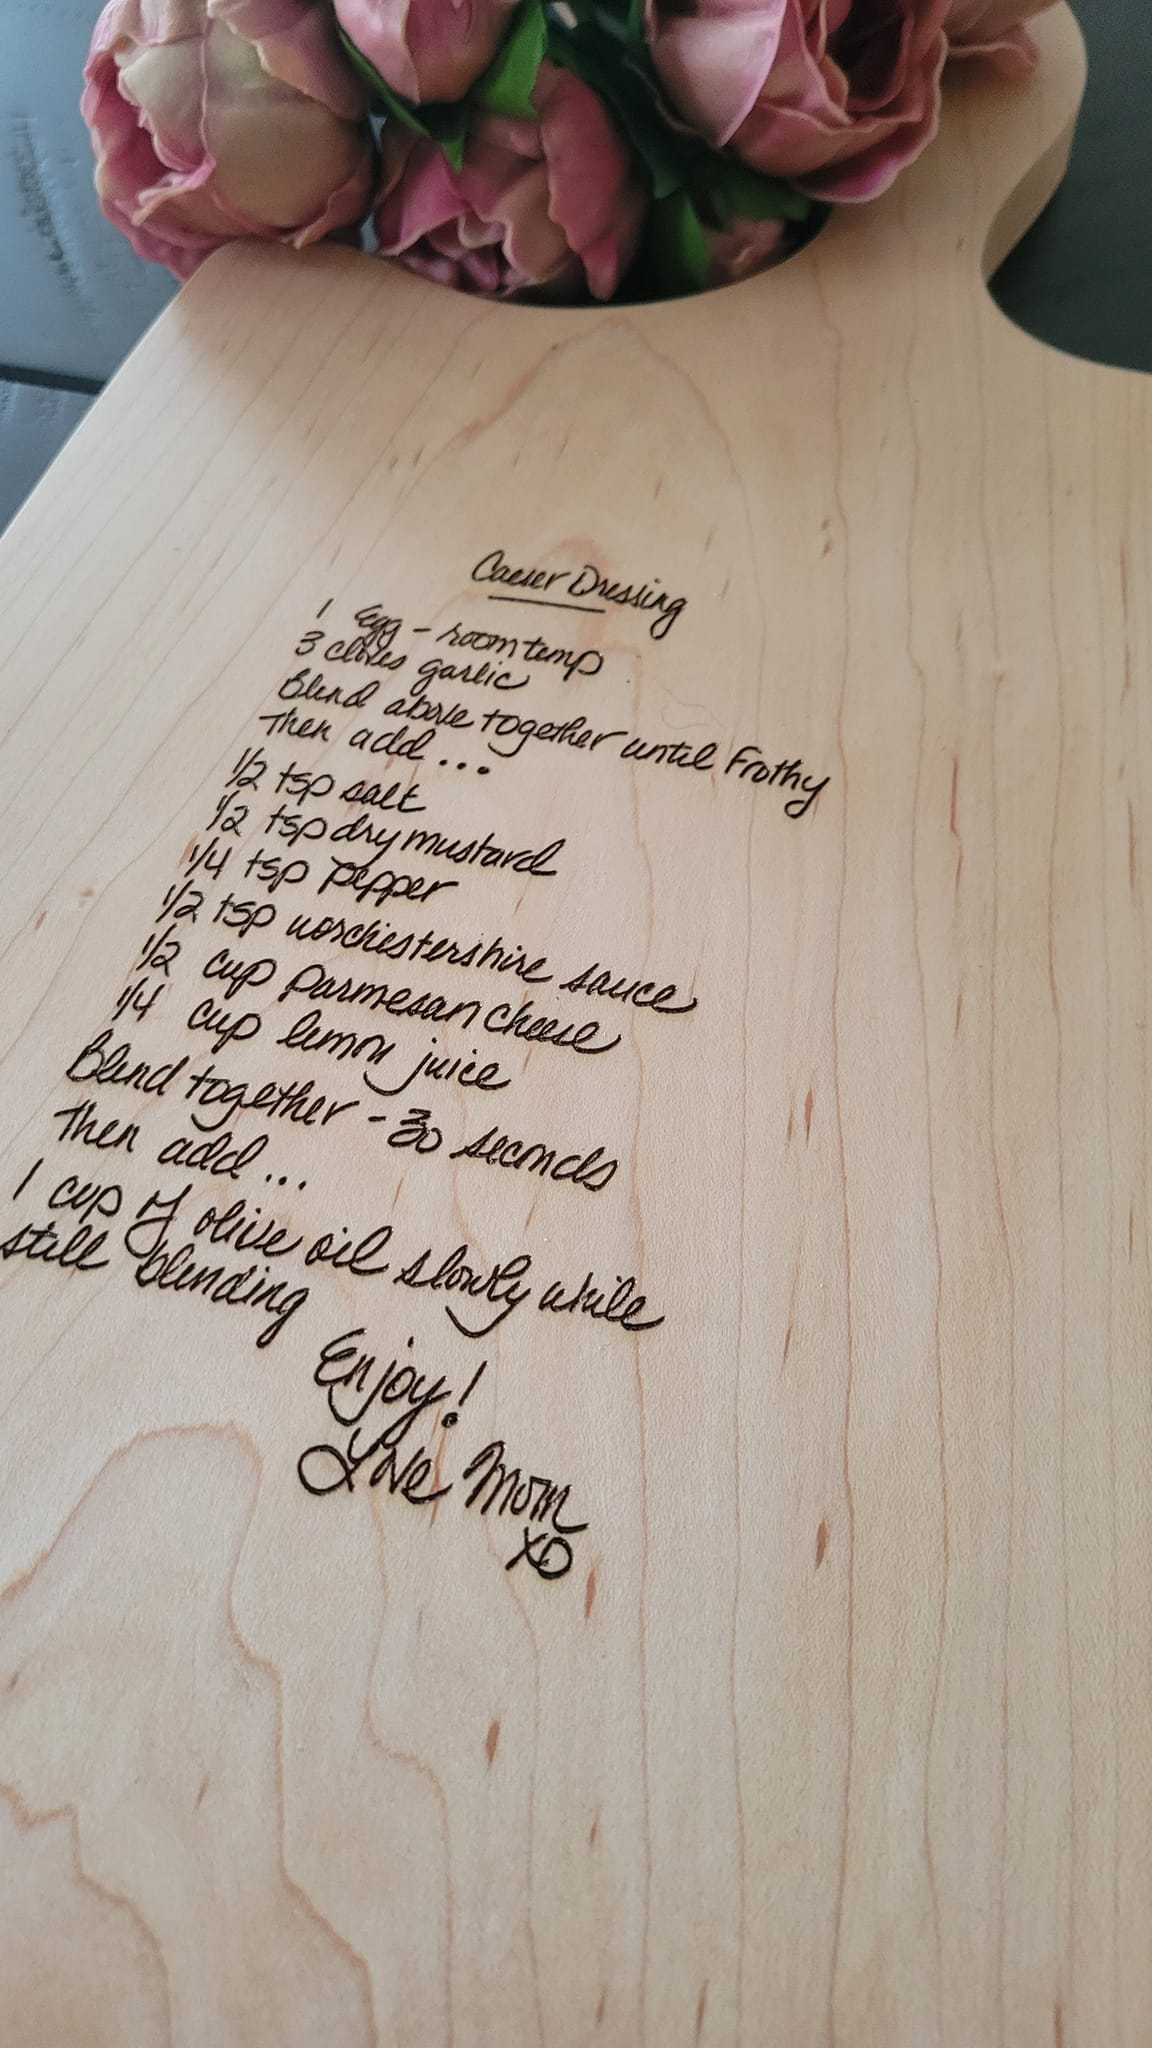 Caeser Dressing
1 Egg - room temp
3 cloves garlic
Blend above together until Frothy
Then add...
1/2 tsp salt
1/2 tsp dry mustard
1/4 tsp Pepper
1/2 tsp worchestershire sauce
1/2 cup parmesan cheese
1/4 cup lemon juice
Blend together - 30 seconds
Then add...
1 cup of olive oil slowly while
still blending
Enjoy!
Love Mom
XO